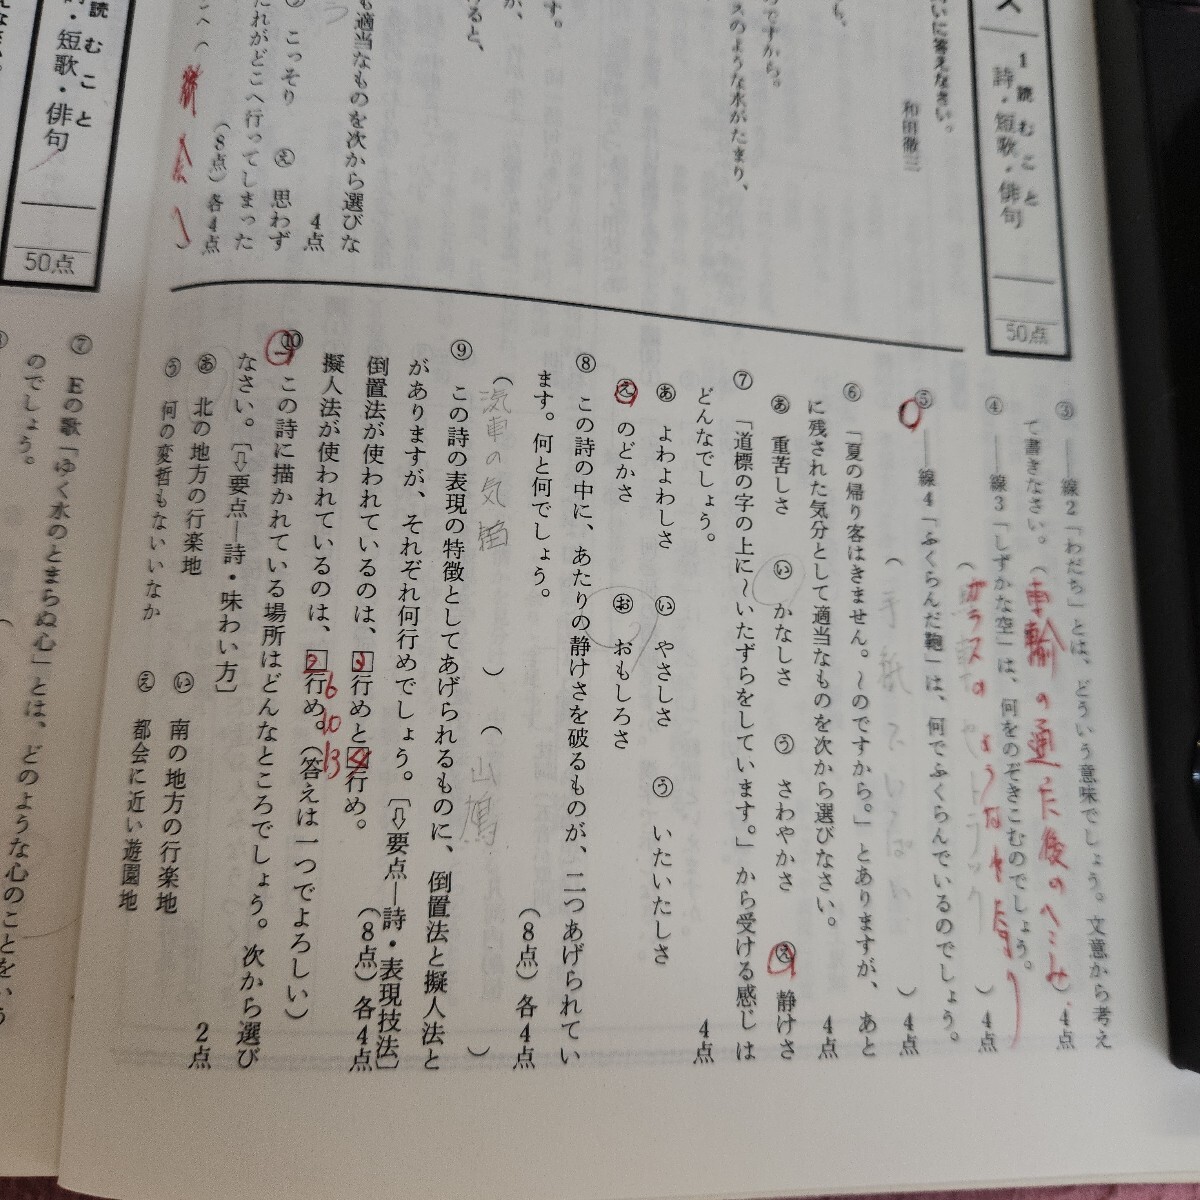 ス
1 読むこと
詩・短歌・俳句
50点
いに答えなさい。
和田徹三
も、
のですから。
スのような水がたまり、
す。
が、
けると、
も適当なものを次から選びな
4点
こっそり え 思わず
だれがどこへ行ってしまった
(8点)各4点
③ ――線2「わだち」とは、どういう意味でしょう。文意から考え
て書きなさい。(車輪の通た後のへこみ)4点
④ ――線3「しずかな空」は、何をのぞきこむのでしょう。
( )4点
⑤ ――線4「ふくらんだ鞄」は、何でふくらんでいるのでしょう。
(手紙でいっぱい)4点
⑥ 「夏の帰り客はきません。~のですから。」とありますが、あと
に残された気分として適当なものを次から選びなさい。 4点
あ 重苦しさ い かなしさ う さわやかさ え 静けさ
⑦ 「道標の字の上に~いたずらをしています。」から受ける感じは
どんなでしょう。 4点
あ よわよわしさ い やさしさ う いたいたしさ
え のどかさ お おもしろさ
⑧ この詩の中に、あたりの静けさを破るものが、二つあげられてい
ます。何と何でしょう。 (8点)各4点
(汽車の気笛)(山鳩)
⑨ この詩の表現の特徴としてあげられるものに、倒置法と擬人法と
がありますが、それぞれ何行めでしょう。〔⇨要点―詩・表現技法〕
倒置法が使われているのは、行めと行め。 (8点)各4点
擬人法が使われているのは、行め。(答えは一つでよろしい)
6
10
13
⑩ この詩に描かれている場所はどんなところでしょう。次から選び
なさい。〔⇨要点―詩・味わい方〕 2点
あ 北の地方の行楽地 い 南の地方の行楽地
う 何の変哲もないいなか え 都会に近い遊園地
読むこと
・短歌・俳句
50点
⑦ Eの歌「ゆく水のとまらぬ心」とは、どのような心のことをいう
のでしょう。